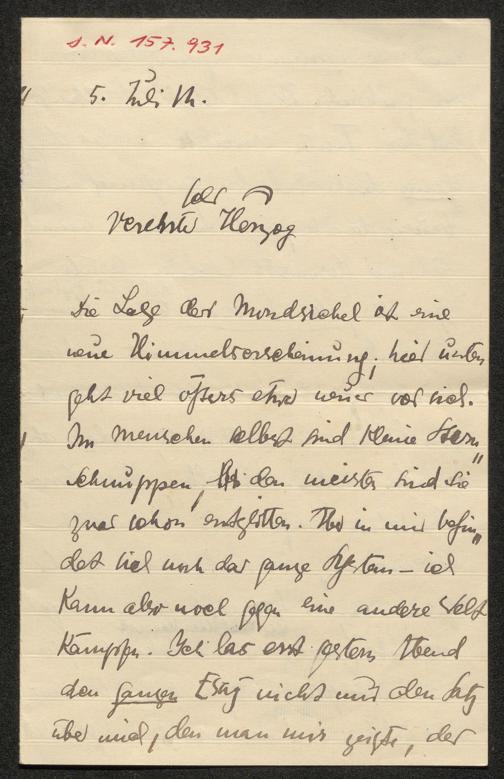 J. N. 157.931
5. Juli 11.
sehr
Verehrter Herzog
Die Lage der Mondsichel ist eine
neue Himmelserscheinung, hier unten
geht viel öfters etwas neues vor sich.
Im Menschen selbst sind kleine Stern"
schnuppen, bei den meisten sind sie
zwar schon entglitten. Aber in mir befin"
det sich noch das ganze System – ich
kann also noch gegen eine andere Welt
kämpfen. Ich las erst gestern Abend
den ganzen Essay nicht nur den Satz
über mich, den man mir zeigte, der